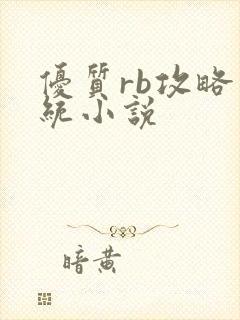 優質rb攻略
統小說
暗黄